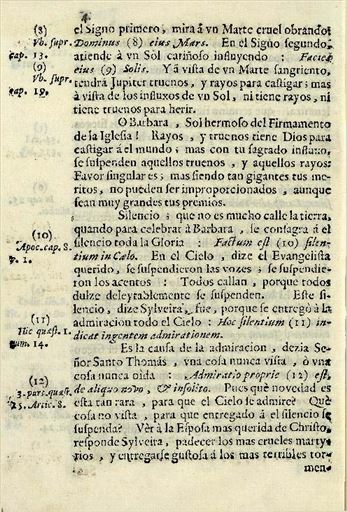 4
el Signo primero, mira à vn Marte cruel obrando:
Dominus (8) ejus Mars. En el Signo segundo,
atiende à vn Sol cariñoso influyendo: Facies
ejus (9) Solis. Y à vista de vn Marte sangriento,
tendrà Jupiter truenos, y rayos para castigar; mas
à vista de los influxos de vn Sol, ni tiene rayos, ni
tiene truenos para herir.
O Barbara, Sol hermoso del Firmamento
de la Iglesia! Rayos, y truenos tiene Dios para
castigar à el mundo; mas con tu sagrado influxo,
se suspenden aquellos truenos, y aquellos rayos:
Favor singular es; mas siendo tan gigantes tus me-
ritos, no pueden ser improporcionados, aunque
sean muy grandes tus premios.
Silencio; que no es mucho calle la tierra,
quando para celebrar à Barbara, se consagra à el
silencio toda la Gloria: Factum est (10) silen-
tium in Cœlo. En el Cielo, dize el Evangelista
querido, se suspendieron las vozes; se suspendie-
ron los acentos: Todos callan, porque todos
dulze deleytablemente se suspenden. Este si-
lencio, dize Sylveira, fue, porque se entregò à la
admiracion todo el Cielo: Hoc silentium (11) in-
dicat ingentem admirationem.
Es la causa de la admiracion, dezia Se-
ñor Santo Thomàs, vna cosa nunca vista, ò vna
cosa nunca oìda: Admiratio proprie (12) est,
de aliquo novo, & insolito. Pues què novedad es
esta tan rara, para que el Cielo se admire? Què
cosa no vista, para que entregado à el silencio se
suspenda? Vèr à la Esposa mas querida de Christo,
responde Sylveira, padecer los mas crueles marty-
rios, y entregarse gustosa à los mas terribles tor-
men-
(8)
Vb. supr.
cap. 13.
(9)
Vb. supr.
cap. 19.
(10)
Apoc. cap. 8.
v. 1.
(11)
Hic quæst. 1.
num. 14.
(12)
3. part. quæst.
15. Artic. 8.